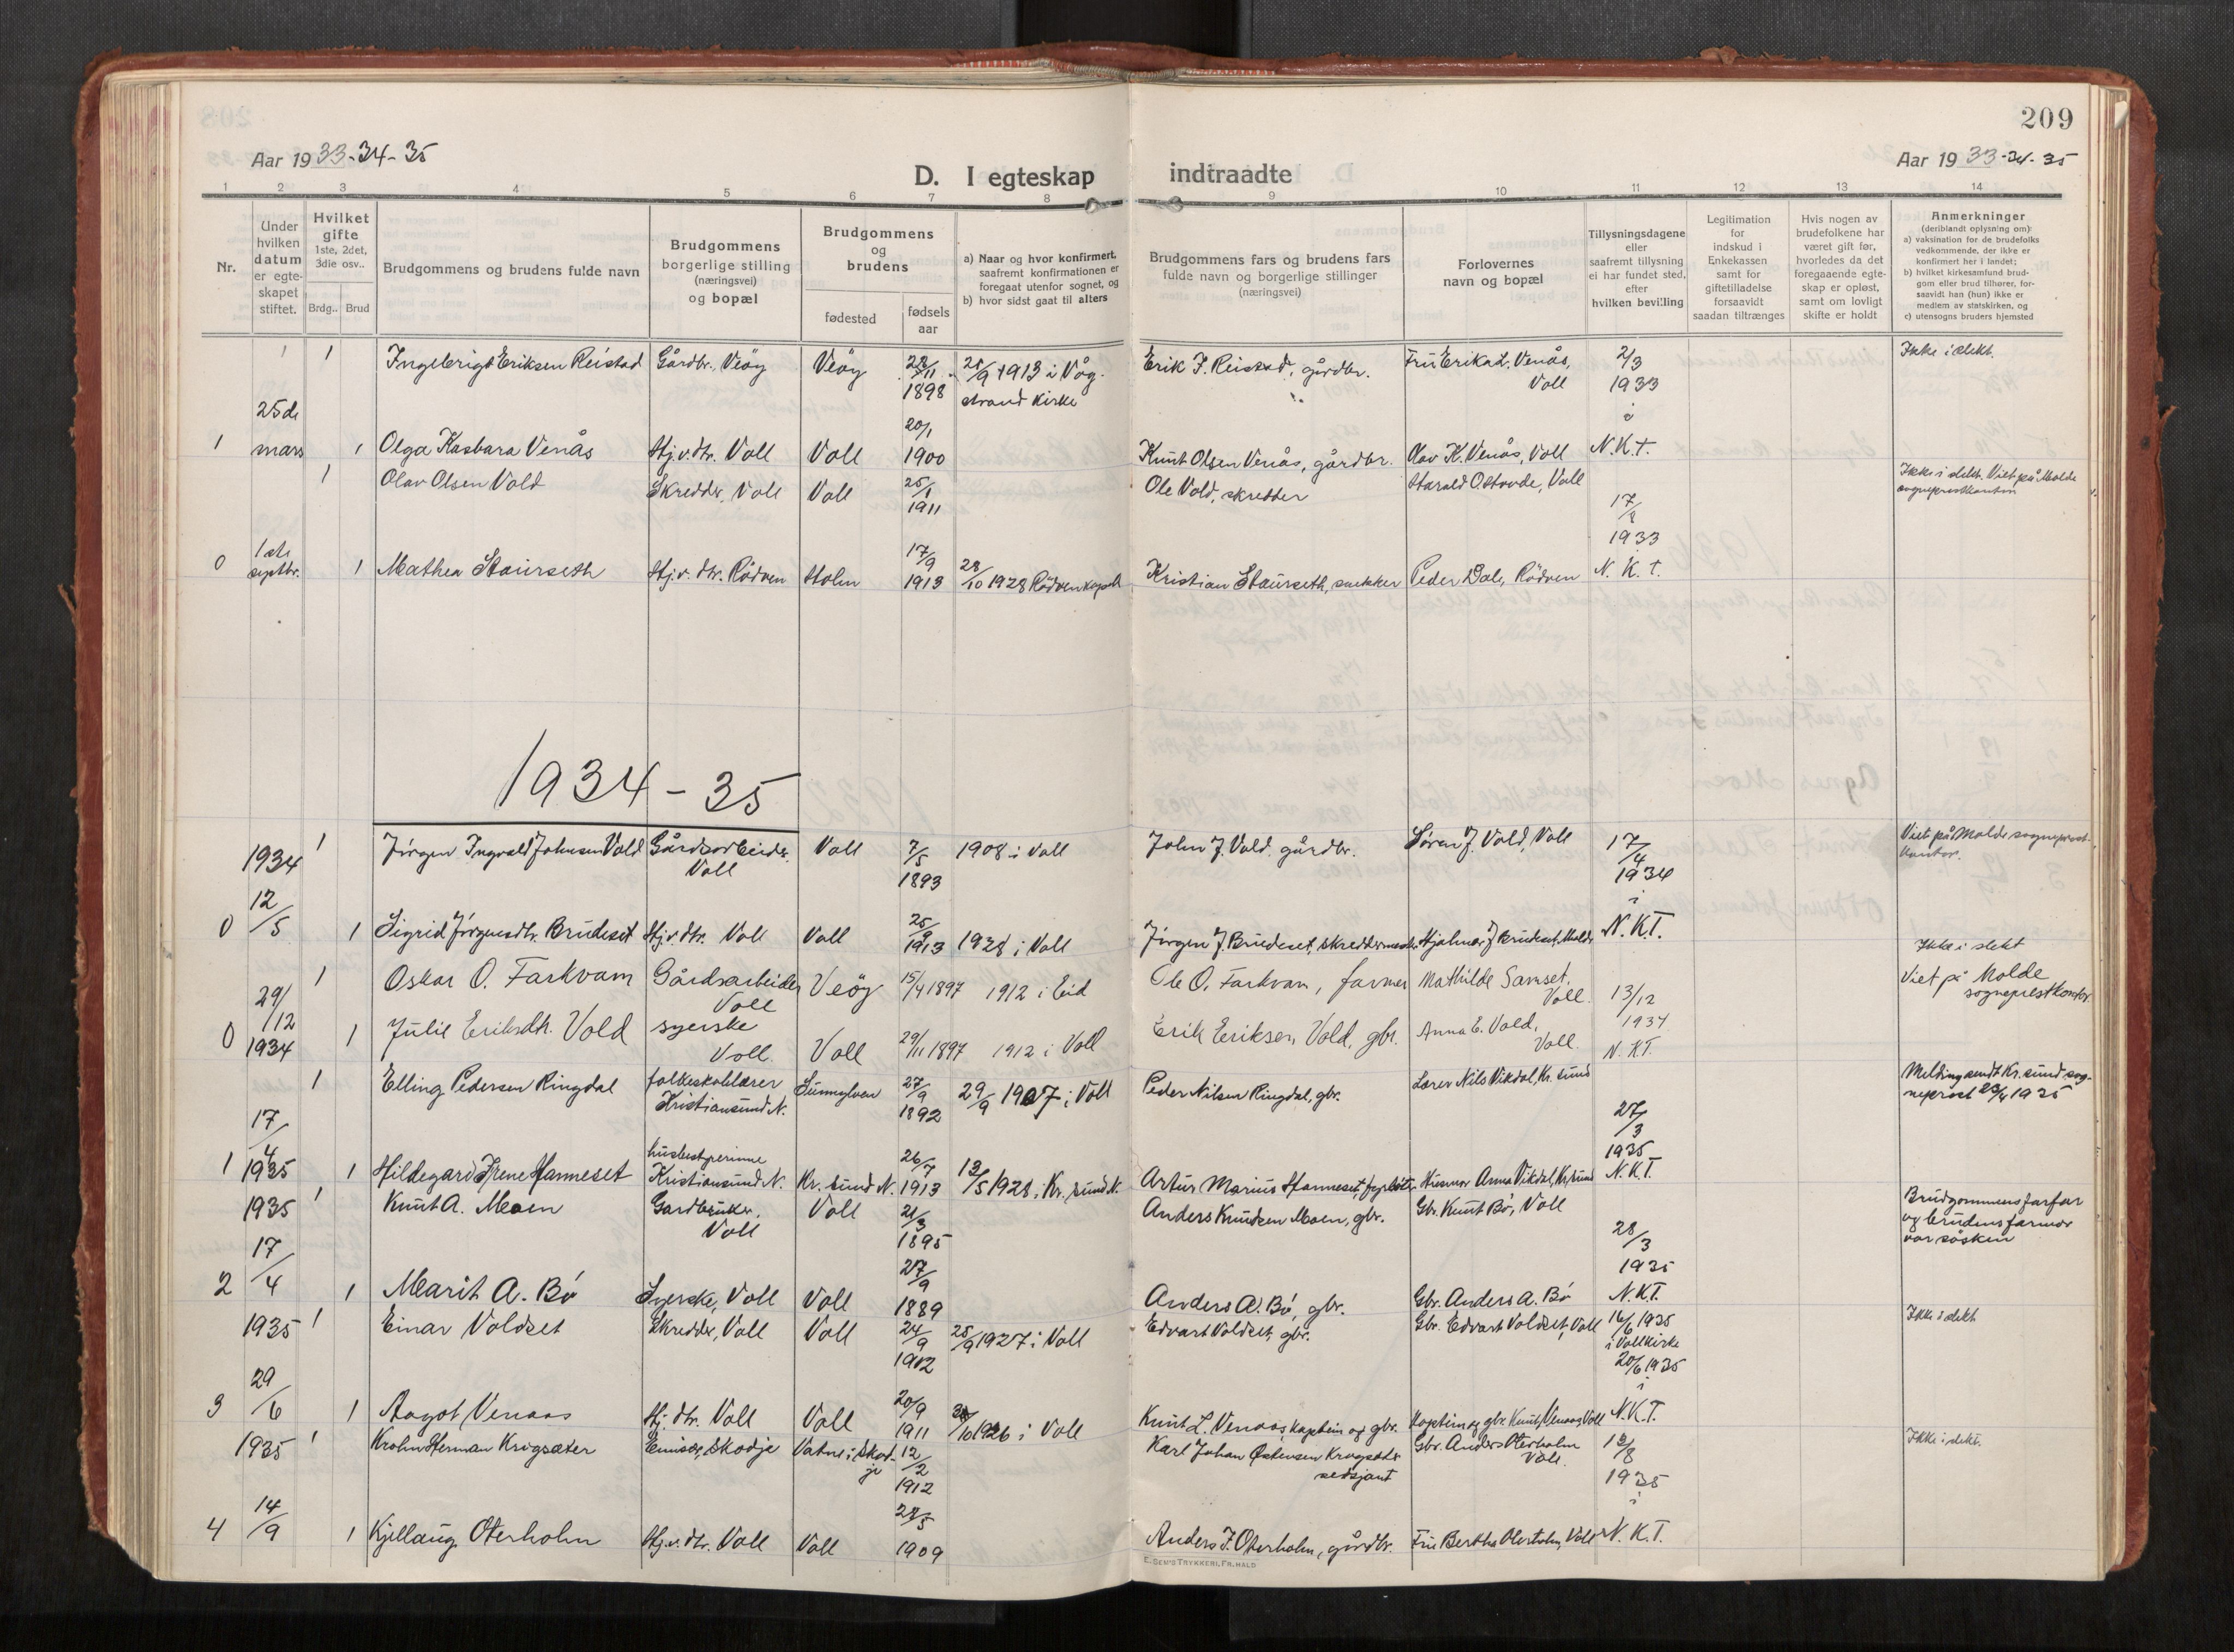 209
Aar 1933-34-35
D. I egteskap indtraadte
Aar 1933-34-35
1 2 3 4 5 6 7 8 9 10 11 12 13 14
Nr.
Under hvilken datum er egteskapet stiftet.
Hvilket gifte 1ste, 2det, 3die osv..
Brdg.. Brud
Brudgommens og brudens fulde navn
Brudgommens borgerlige stilling (næringsvei) og bopæl
Brudgommens og brudens
fødested
fødsels aar
a) Naar og hvor konfirmert, saafremt konfirmationen er foregaat utenfor sognet, og
b) hvor sidst gaat til alters
Brudgommens fars og brudens fars fulde navn og borgerlige stillinger (næringsvei)
Forlovernes navn og bopæl
Tillysningsdagene eller saafremt tillysning ei har fundet sted, efter hvilken bevilling
Legitimation for indskud i Enkekassen samt for giftetilladelse forsaavidt saadan tiltrænges
Hvis nogen av brudefolkene har været gift før, hvorledes da det foregaaende egteskap er opløst, samt om lovligt skifte er holdt
Anmerkninger
(deriblandt oplysning om):
a) vaksination for de brudefolks vedkommende, der ikke er konfirmert her i landet;
b) hvilket kirkesamfund brudgom eller brud tilhører, forsaavidt han (hun) ikke er medlem av statskirken, og
c) utensogns bruders hjemsted
1 Ingebrigt Eriksen Reistad Gårdbr. Veöy Veöy 1898 1913 i Vågstrand kirke Erik J. Reistad, gårdbr. Fru Erika L. Venås, Voll 2/3 1933 i Ikke i slekt.
1 25de mars 1 Olga Kasbara Venås Hj.v. dtr. Voll Voll 20/1 1900 Knut Olsen Venås, gårdbr. Olav K. Venås, Voll N.K.t.
1 Olav Olsen Vold Skredder, Voll Voll 25/1 1911 Ole Vold, skredder Ikke i slekt. Viet på Molde sogneprestkontor
17/8 1933
0 1ste septbr. 1 Mathea Staurseth Hj.v. dtr. Rödven Holm 17/9 1913 28/10 1928 Rödven kapell Kristian Staurseth, snekker Peder Dale, Rödven N.K.t.
1934-35
1934 1 Jörgen Ingvald Johnsen Vold Gårdsarbeider, Voll Voll 7/5 1893 1908 i Voll John J. Vold, gårdbr. Sören J. Vold, Voll 17/4 1934 i Viet på Molde sogneprestkontor.
0 12/5 1 Sigrid Jörgensdtr. Brudeset Hj.v. dtr. Voll Voll 25/9 1913 1928 i Voll Jörgen J. Brudeset, skreddermester Hjalmar J. Brudeset, Molde N.K.T.
1 Oskar O. Farkvam Gårdsarbeider Voll Veöy 15/4 1897 1912 i Eid Ole O. Farkvam, farmer Mathilde Samset, Voll. 13/12 1934. Ikke i slekt Viet på Molde sogneprestkontor
0 29/12 1934 1 Julie Eriksdtr. Vold syerske Voll. Voll 29/11 1897 1912 i Voll Erik Eriksen Vold, gbr. Anna E. Vold, Voll. N.K.T.
1 Elling Pedersen Ringdal folkeskolelærer Kristiansund N. Sunnylven 27/9 1892 29/9 1907 i Voll Peder Nilsen Ringdal, gbr. Lærer Nils Vikdal, Kr.sund 27/3 1935 Melding sendt Kr.sund sogneprest 23/4 1935
1 17/4 1935 1 Hildegard Irene Hanneset husbestyrerinne Kristiansund N. Kr.sund N. 26/7 1913 13/5 1928 i Kr.sund N. Artur Marius Hanneset, fyrböter Husmor Anna Vikdal, Kr.sund N.K.T.
1935 1 Knut A. Moen Gardbruker, Voll Voll 21/3 1895 Anders Knudsen Moen, gbr. Gbr. Knut Bö, Voll 28/3 1935 Brudgommens farfar og brudens farmor var sösken
2 17/4 1 Marit A. Bö Syerske, Voll Voll 27/9 1889 Anders A. Bö, gbr. Gbr. Anders A. Bö N.K.T.
1935 1 Einar Voldset Skredder, Voll Voll 24/9 1912 25/9 1927 i Voll Edvart Voldset, gbr. Gbr. Edvart Voldset, Voll 16/6 1935 i Voll kirke 20/6 1935 i Ikke i slekt
3 29/6 1 Aagot Venaas Hj. dtr. Voll Voll 20/9 1911 1926 i Voll Knut L. Venaas, kaptein og gbr. Kaptein og gbr. Knut Venaas, Voll N.K.T.
1935 1 Krohn Herman Krogsæter Skodje Vatne i Skodje 12/2 1912 Karl Johan Østensen Krogsæter sersjant Gbr. Anders Oterholm Voll. 1935 i Ikke i slekt.
4 14/9 1 Kjellaug Oterholm Hj.v. dtr. Voll Voll 1909 Anders J. Oterholm, gårdbr. Fru Bertha Oterholm, Voll N.K.T.
E. SEM'S TRYKKERI, FR.HALD